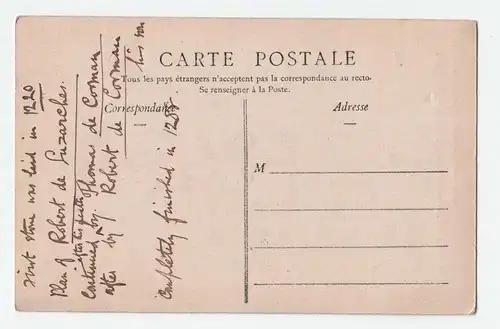 CARTE POSTALE
Tous les pays étrangers n'acceptent pas la correspondance au recto-
Se renseigner à la Poste.
Correspondance
Adresse
M
First stone was laid in 1220
Plan of Robert de Luzarches.
after his death
continued by Thomas de Corman
after by Robert de Corman
his son
Completely finished in 1288